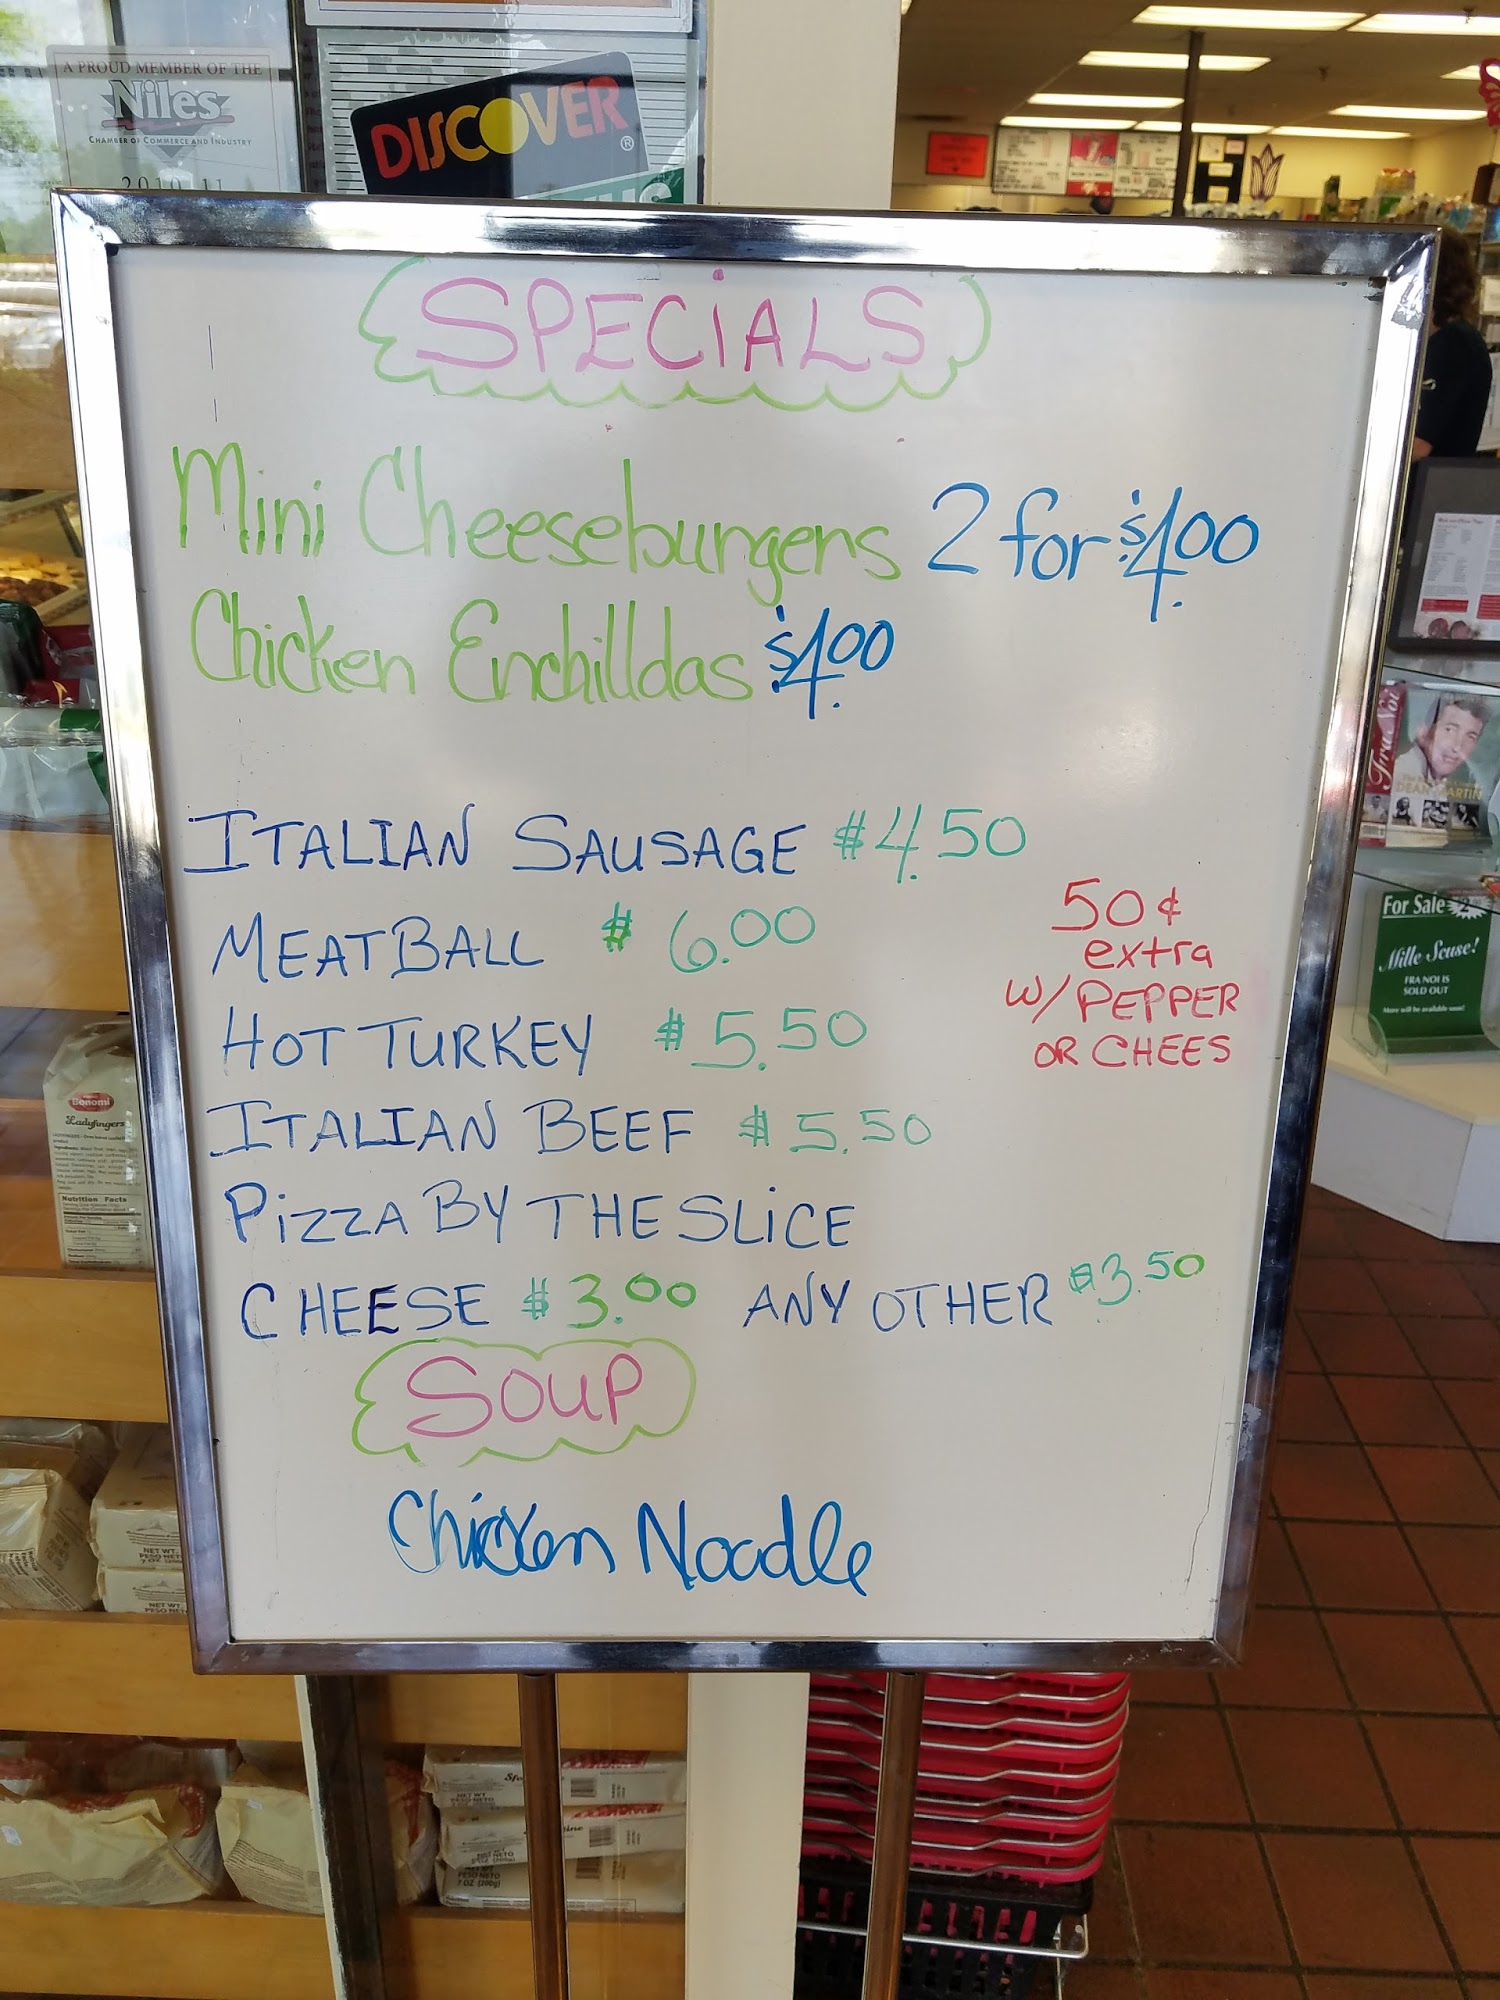 A PROUD MEMBER OF THE
Niles
CHAMBER OF COMMERCE AND INDUSTRY
DISCOVER
SPECiALS
Mini Cheeseburgers 2 for $4.00
Chicken Enchilldas $4.00
ITALIAN SAUSAGE $4.50
MEATBALL $6.00
50¢
extra
W/PEPPER
OR CHEES
HOT TURKEY $5.50
ITALIAN BEEF $5.50
PiZZA BY THE SLiCE
CHEESE $3.00 ANY OTHER $3.50
SOUP
Chicken Noodle
Fra Noi
DEAN MARTIN
For Sale
Mille Scuse!
FRA NOI IS
SOLD OUT
More will be available soon!
Bonomi
Ladyfingers
Nutrition Facts
NET WT.
PESO NETO
7 OZ (200g)
NET WT.
PESO NETO
NET WT
PESO NETO
PESO NETO
7 OZ (200g)